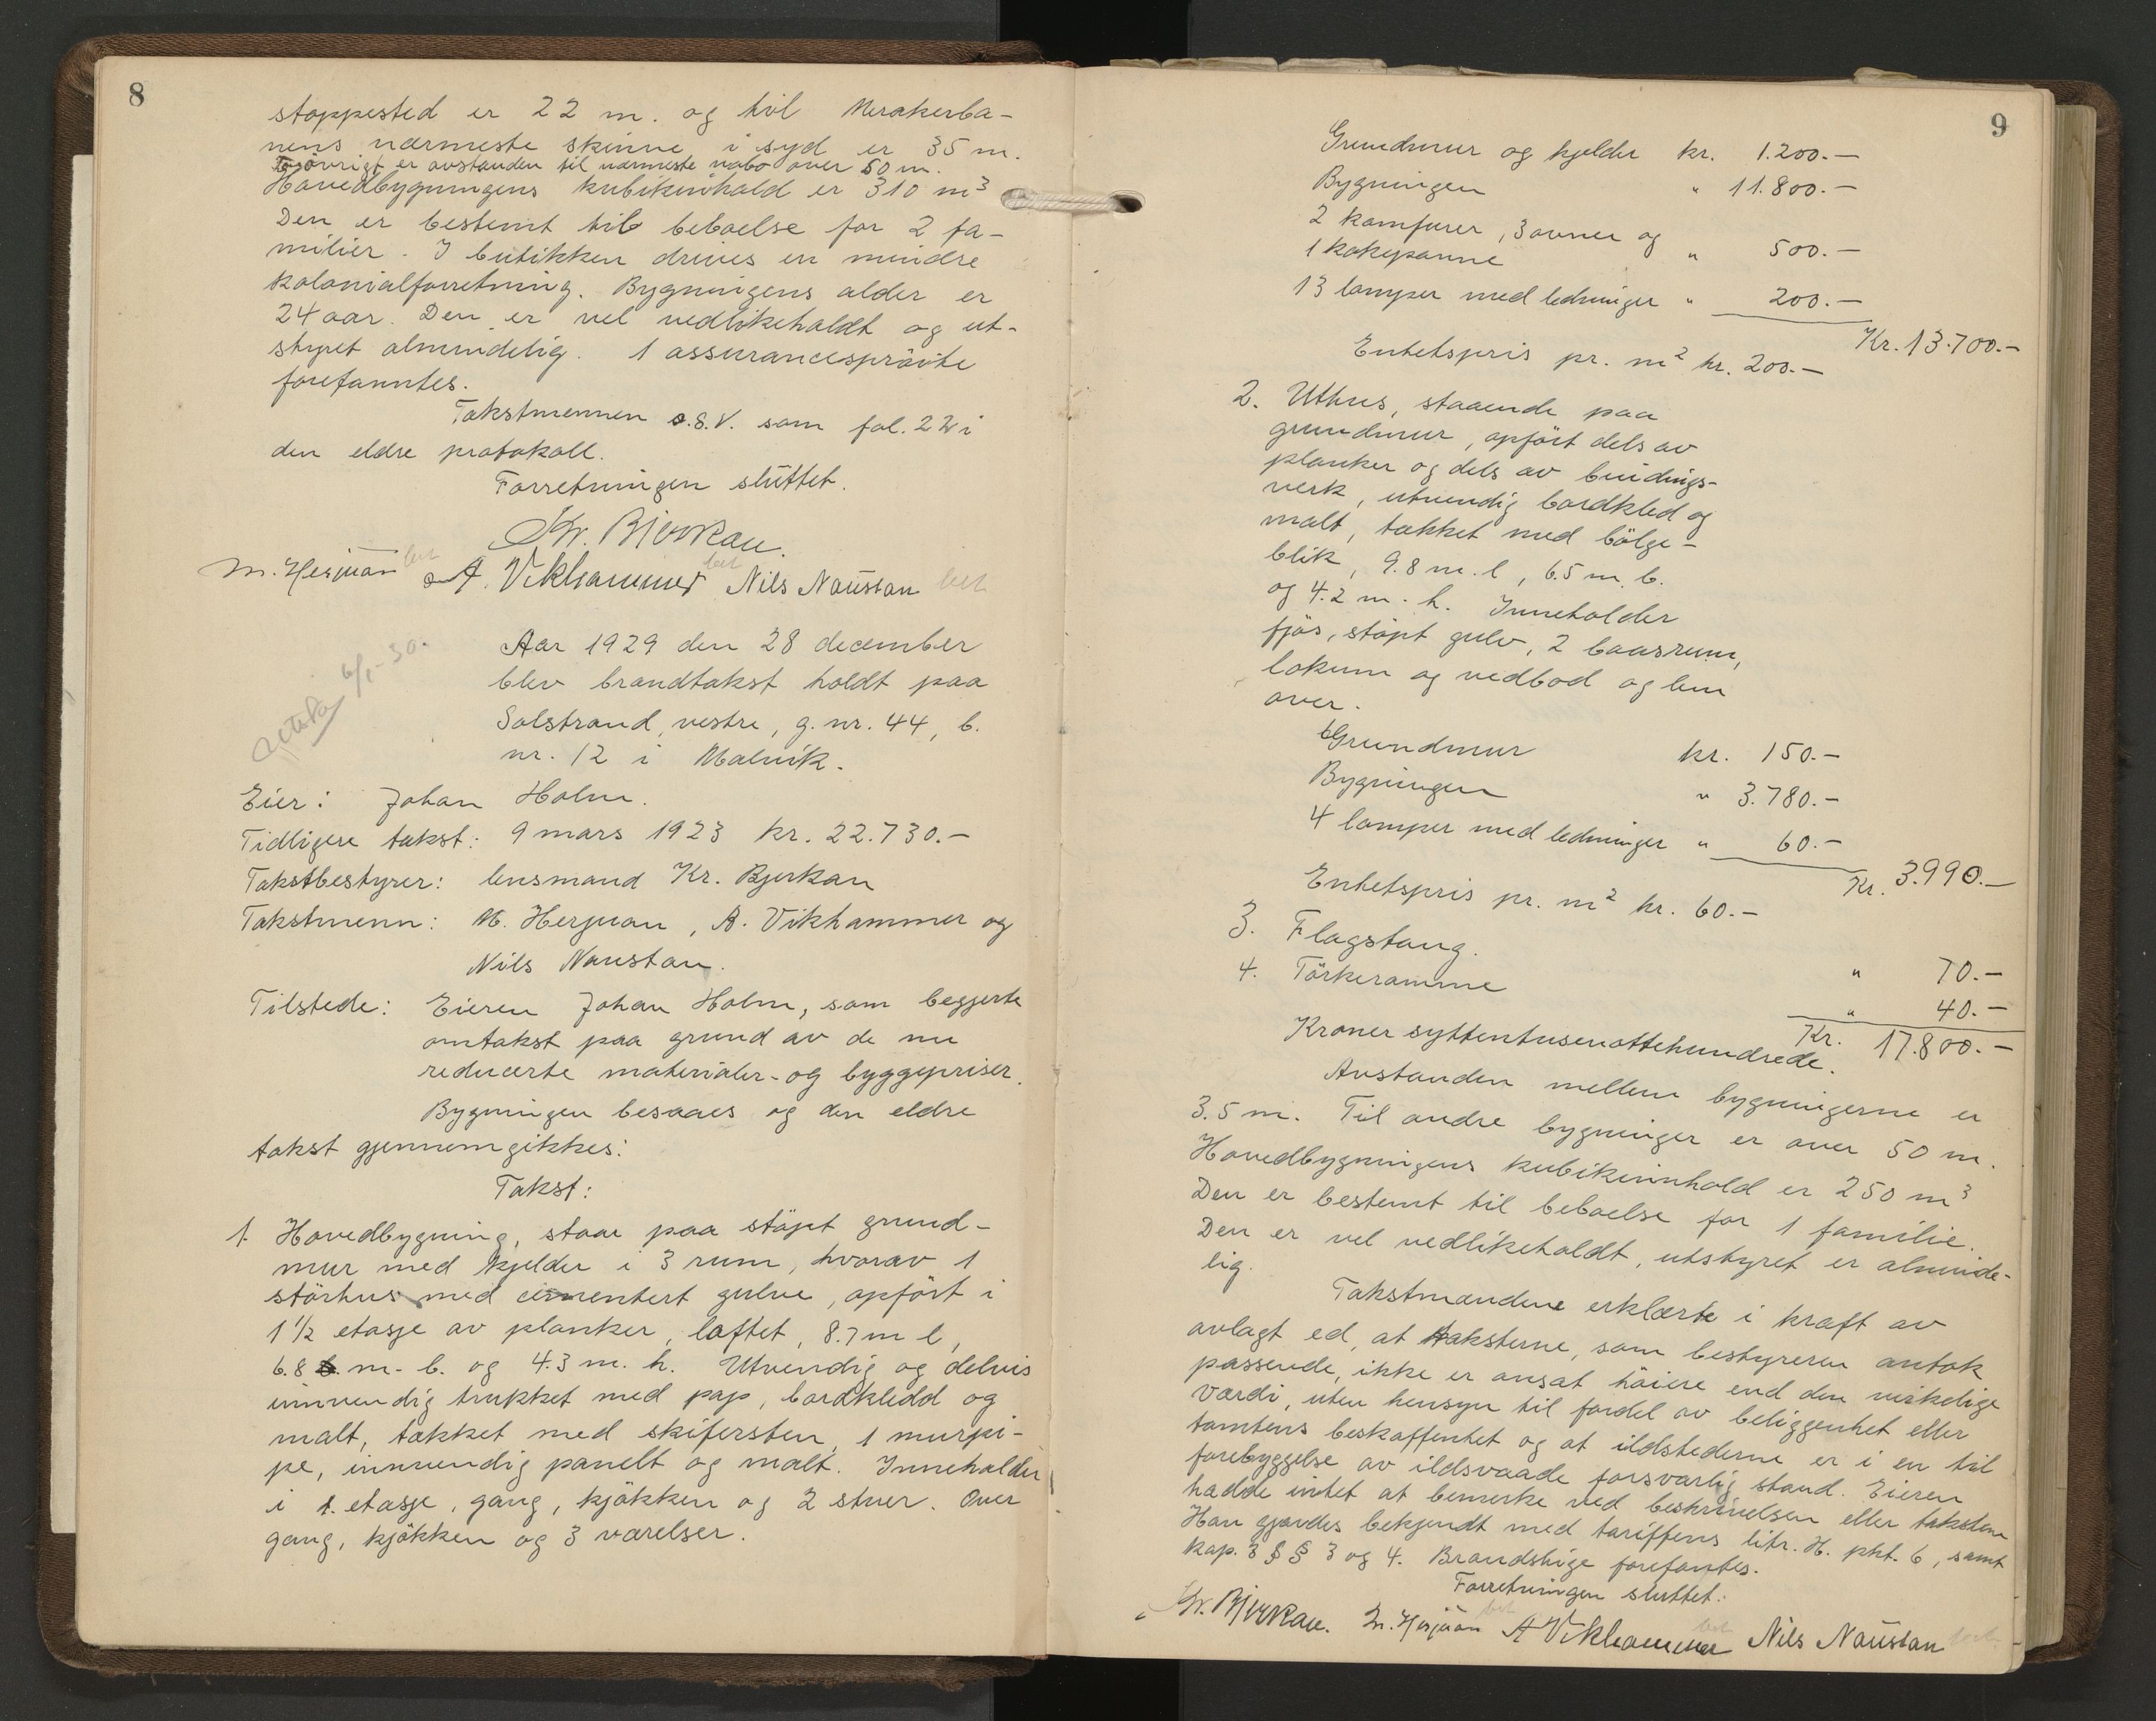 8
stoppested er 22 m. og til Merakerba-
nens nærmeste skinne i syd er 35 m.
Forövrigt er avstanden til nærmeste nabo over 50 m.
Hovedbygningens kubikinhold er 310 m³
Den er bestemt til beboelse for 2 fa-
milier. I butikken drives en mindre
kolonialforretning. Bygningens alder er
24 aar. Den er vel vedlikeholdt og ut-
styret almindelig. 1 assurancespröite
forefanntes.
Takstmennen o.s.v. som fol. 22 i
den eldre protokoll.
Forretningen sluttet.
Kr. Bjerkan.
M. Herjuan bet A. Vikhammer bet Nils Naustan bet
Aar 1929 den 28 december
blev brandtakst holdt paa
Solstrand, vestre, g. nr. 44, b.
nr. 12 i Malvik.
6/1-30.
Eier: Johan Holm.
Tidligere takst: 9 mars 1923 kr. 22.730.-
Takstbestyrer: lensmand Kr. Bjerkan
Takstmenn: M. Herjuan, A. Vikhammer og
Nils Naustan.
Tilstede: Eieren Johan Holm, som begjerte
omtakst paa grund av de nu
reducerte materialer- og byggepriser.
Bygningen besaaes og den eldre
takst gjennemgikkes:
Takst:
1. Hovedbygning, staar paa stöpt grund-
mur med kjelder i 3 rum, hvorav 1
störhus med cementert gulve, opfört i
1 1/2 etasje av planker, laftet, 8.7 m l,
6.8 m. b. og 4.3 m. h. Utvendig og delvis
innvendig trukket med pap, bordkledd og
malt, tækket med skifersten, 1 murpi-
pe, innvendig panelt og malt. Inneholder
i 1. etasje, gang, kjökken og 2 stuer. Over
gang, kjökken og 3 værelser.
9
Grundmur og kjelder kr. 1.200.-
Bygningen " 11.800.-
2 komfurer, 3 ovner og
1 kokepanne " 500.-
13 lamper med ledninger " 200.-
Kr. 13.700.-
Enhetspris pr. m² kr. 200.-
2. Uthus, staaende paa
grundmur, opfört dels av
planker og dels av bindings-
verk, utvendig bordkled og
malt, tækket med bölge-
blik, 9.8 m. l, 6.5 m. b.
og 4.2 m. h. Inneholder
fjös, stöpt gulv, 2 baasrum,
lokum og vedbod og lem
over.
Grundmur kr. 150.-
Bygningen " 3.780.-
4 lamper med ledninger " 60.-
Kr. 3.990.-
Enhetspris pr. m² kr. 60.-
3. Flagstang. " 70.-
4. Törkeramme " 40.-
Kr. 17.800.-
Kroner syttentusenottehundrede.
Avstanden mellem bygningerne er
3.5 m. Til andre bygninger er over 50 m.
Hovedbygningens kubikinnhold er 250 m³
Den er bestemt til beboelse for 1 familie.
Den er vel vedlikeholdt, utstyret er alminde-
lig.
Takstmændene erklærte i kraft av
avlagt ed, at taksterne, som bestyreren antok
passende, ikke er ansat höiere end den virkelige
værdi, uten hensyn til fordel av beliggenhet eller
tomtens beskaffenhet og at ildstederne er i en til
forebyggelse av ildsvaade forsvarlig stand. Eieren
hadde intet at bemerke ved beskrivelsen eller taksten
Han gjordes bekjendt med tariffens litr. H. pkt. 6, samt
kap. 3 §§ 3 og 4. Brandstige forefantes.
Forretningen sluttet.
Kr. Bjerkan. M. Herjuan bet A Vikhammer bet Nils Naustan bet